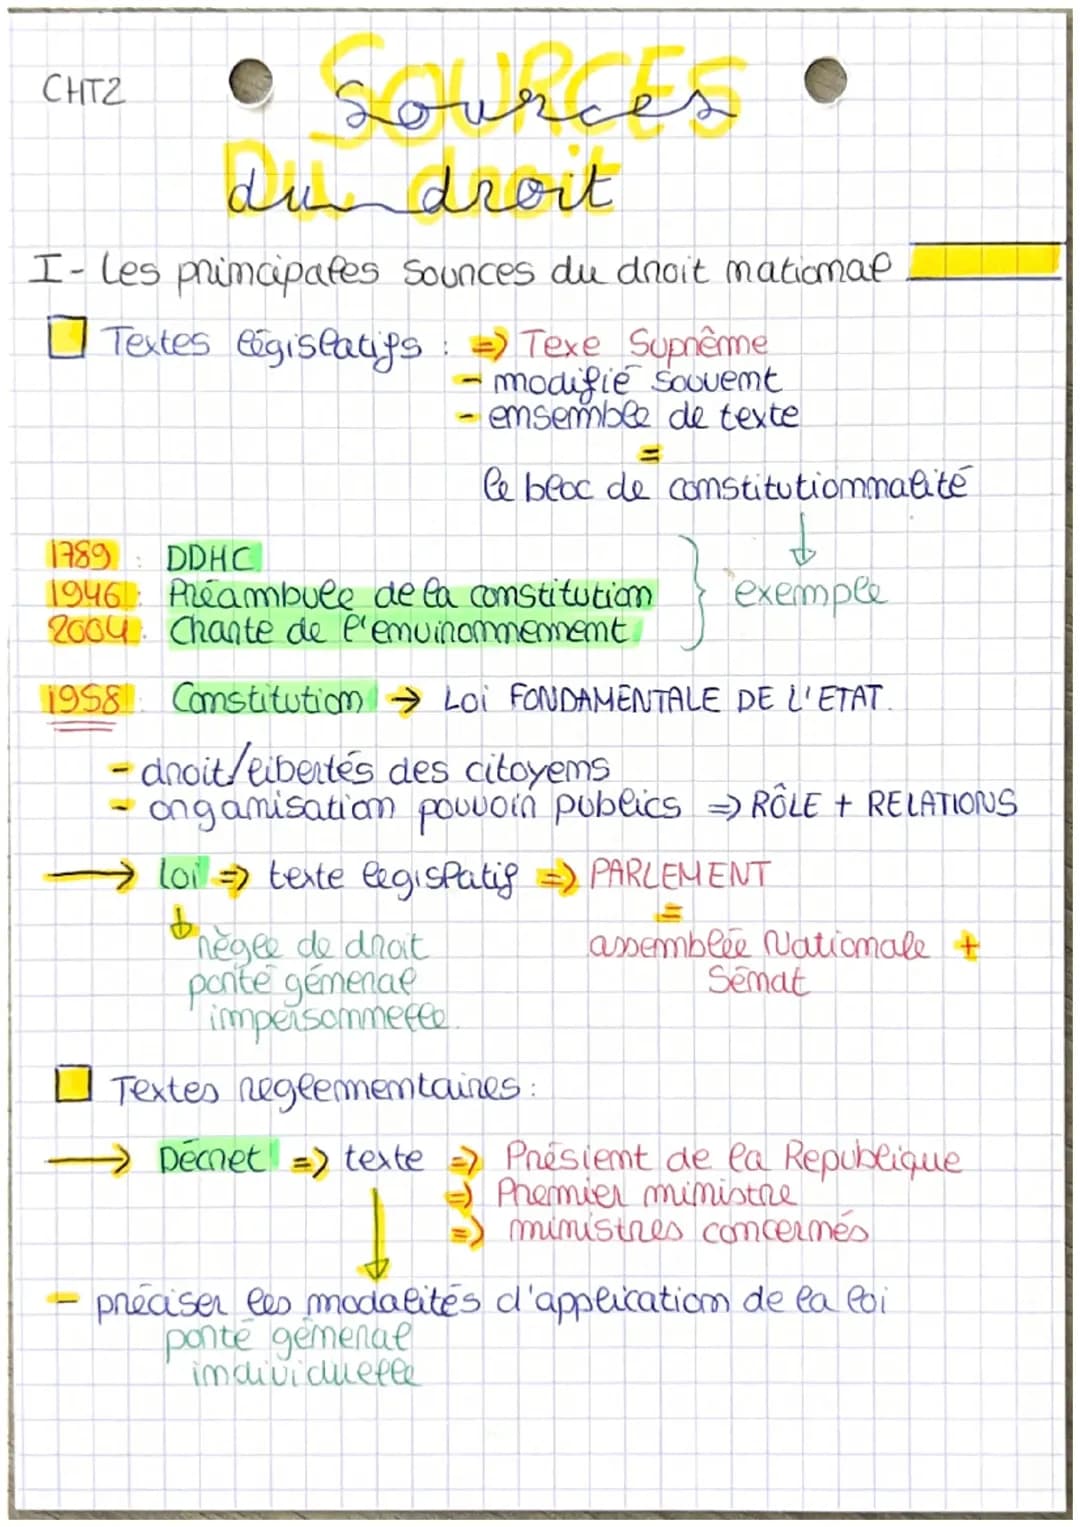 CHT2
SOURCES
Du droit
Sources
du droit
I - Les principales sources du droit national
Textes législatifs : => Texe Suprême
- modifié souvent
- ensemble de texte
=
le bloc de constitutionnalité
1789 : DDHC
1946 : Préambule de la constitution
exemple
2004 : Charte de l'environnement
1958 : Constitution → Loi FONDAMENTALE DE L'ETAT.
- droit/libertés des citoyens
- organisation pouvoir publics => RÔLE + RELATIONS
→ loi => texte legislatif => PARLEMENT
=
règle de droit
assemblée Nationale +
porté géneral
Sénat
impersonnelle.
Textes reglementaires :
→ Décret => texte => Présient de la Republique
=> Premier ministre
=> ministres concernés
- préciser les modalités d'application de la loi
porté géneral
individuelle